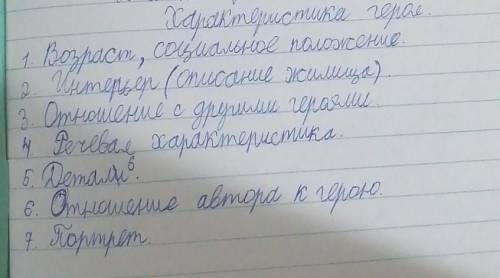 Характеристика героя.
1. Возраст, социальное положение.
2. Интерьер (описание жилища).
3. Отношение с другими героями.
4 Речевая характеристика.
5. Детали.
6. Отношение автора к герою.
7. Портрет.